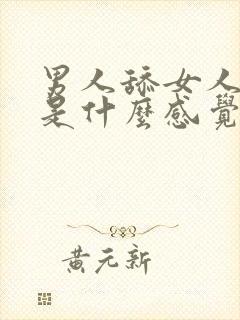 男人舔女人
是什麼感覺
黃元新